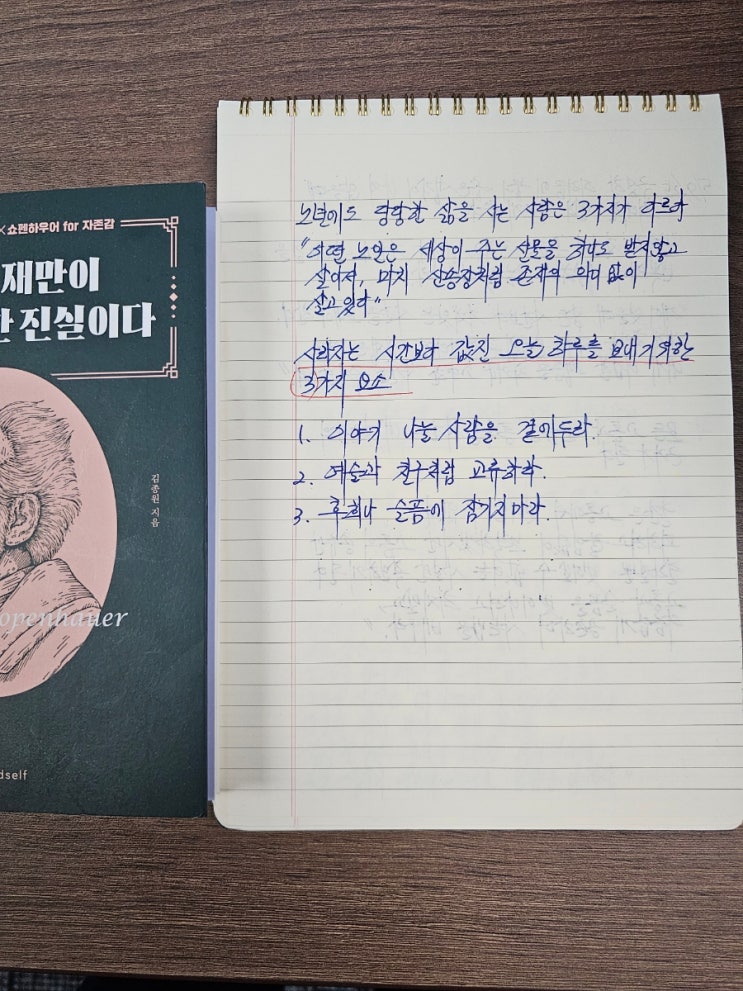 ×쇼펜하우어 for 자존감
재만이
진실이다
김종원 지음
openhauer
dself
노년에도 당당한 삶을 사는 사람은 3가지가 다르다
"어떤 노인은 세상이 주는 선물을 하나도 받지않고
살아서, 마치 산송장처럼 존재의 의미 없이
살고있다"
사라지는 시간보다 값진 오늘 하루를 보내기위한
3가지 요소
1. 이야기 나눌 사람을 곁에두라.
2. 예술과 친구처럼 교류하라.
3. 후회나 슬픔에 잠기지마라.